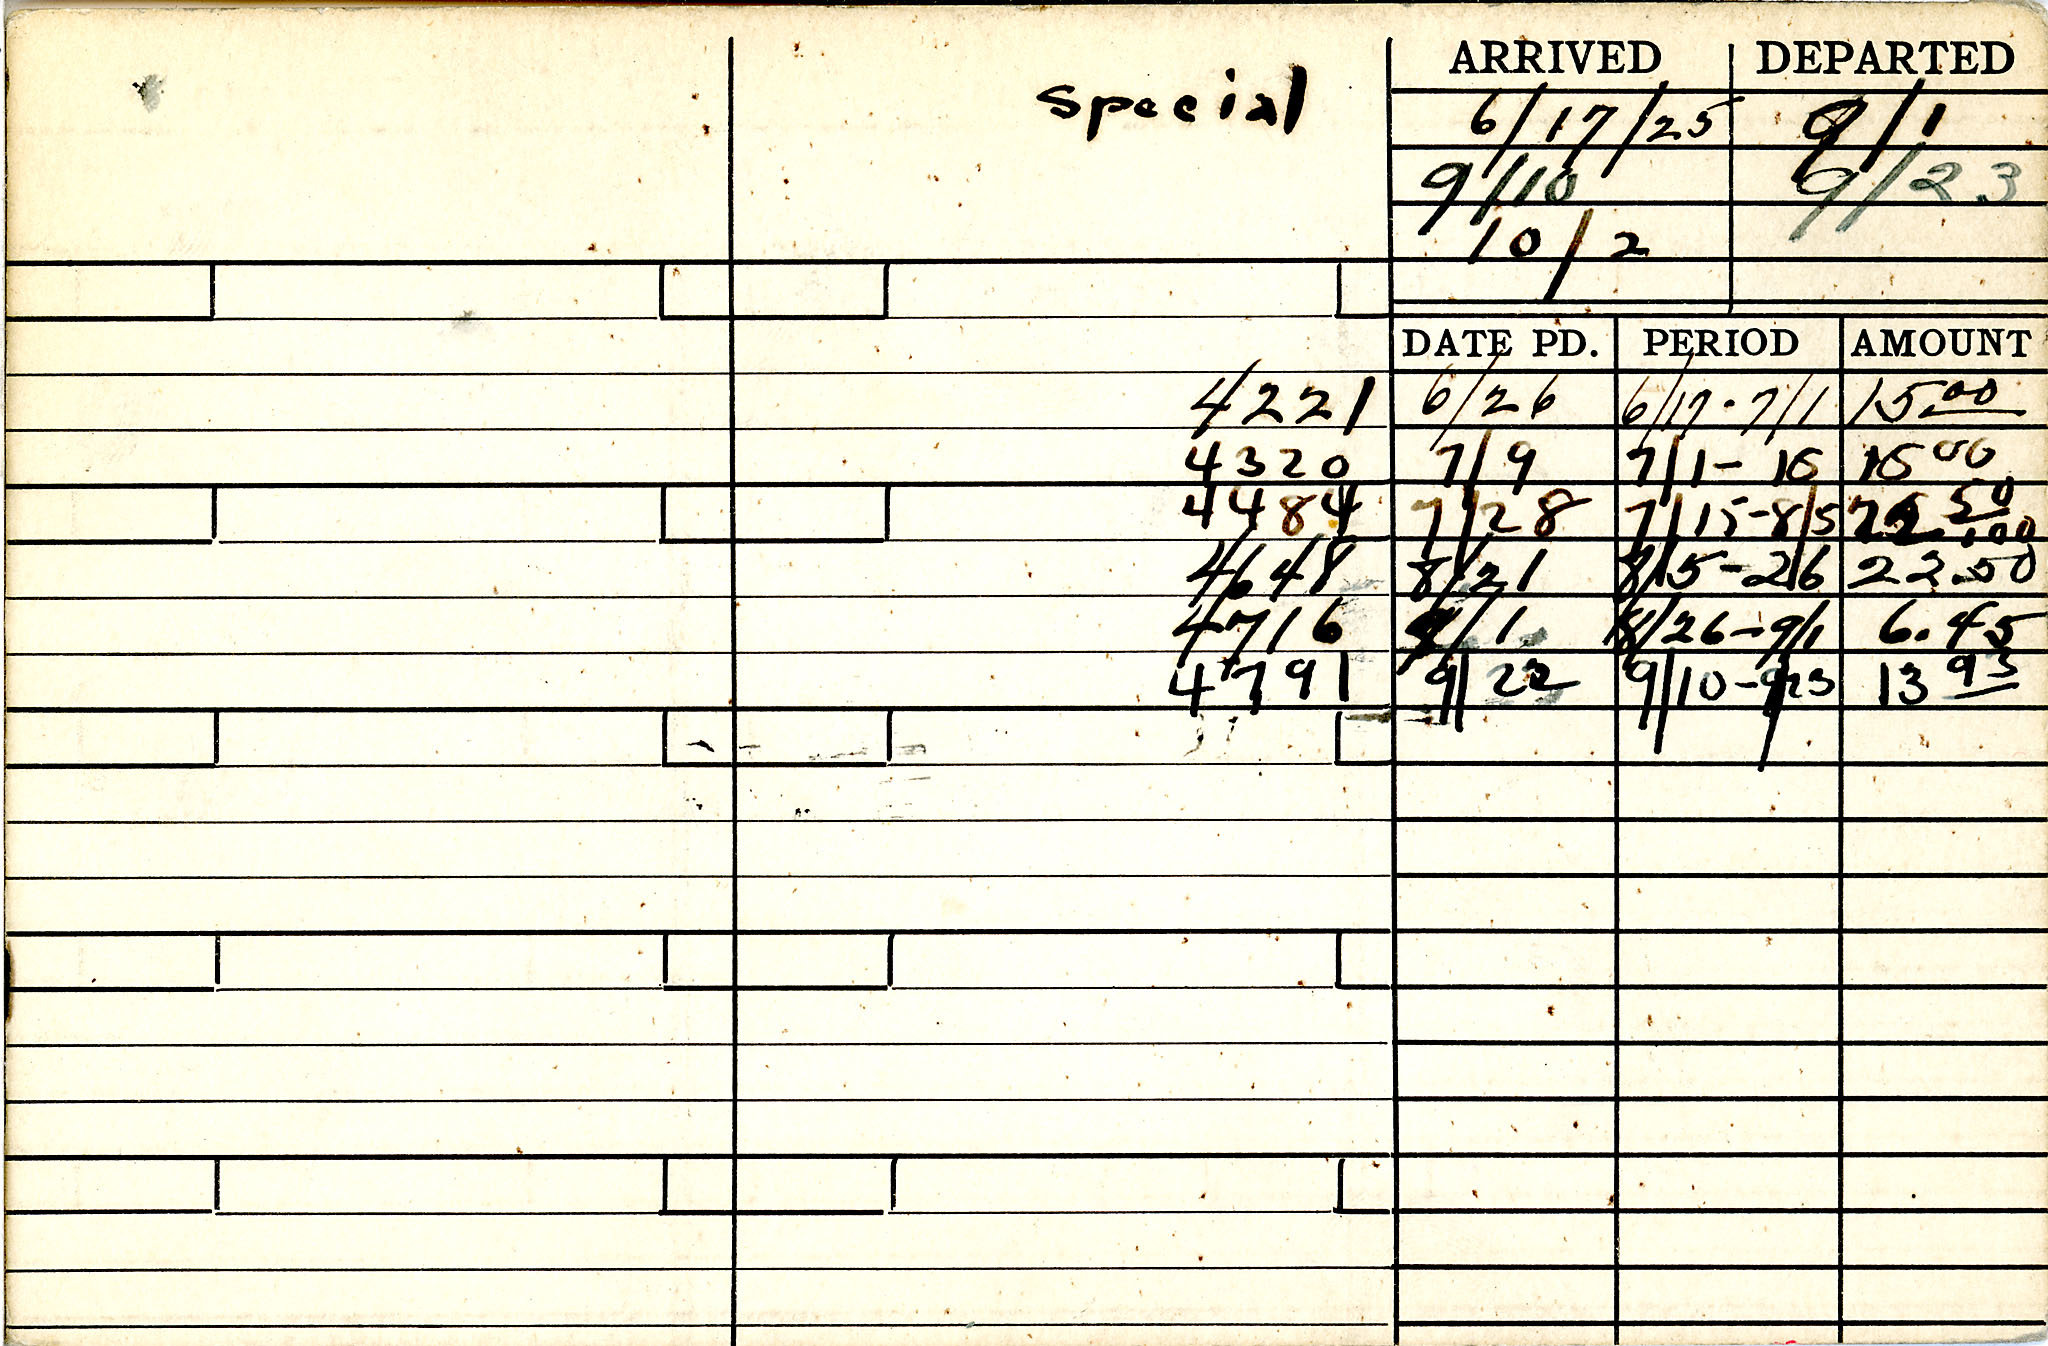 ARRIVED DEPARTED
Special
6/17/25 9/1
9/10 9/23
10/2
DATE PD. PERIOD AMOUNT
4221 6/26 6/17-7/1 15.00
4320 7/9 7/1-15 15 00
4484 7/28 7/15-8/5 22 50
4648 8/21 8/5-26 22.50
4716 9/1 8/26-9/1 6.45
4791 9/22 9/10-9/23 13 93